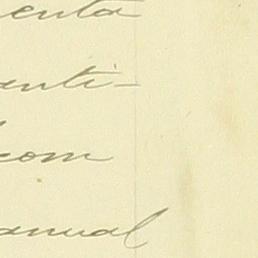 enta
anti-
com
anual